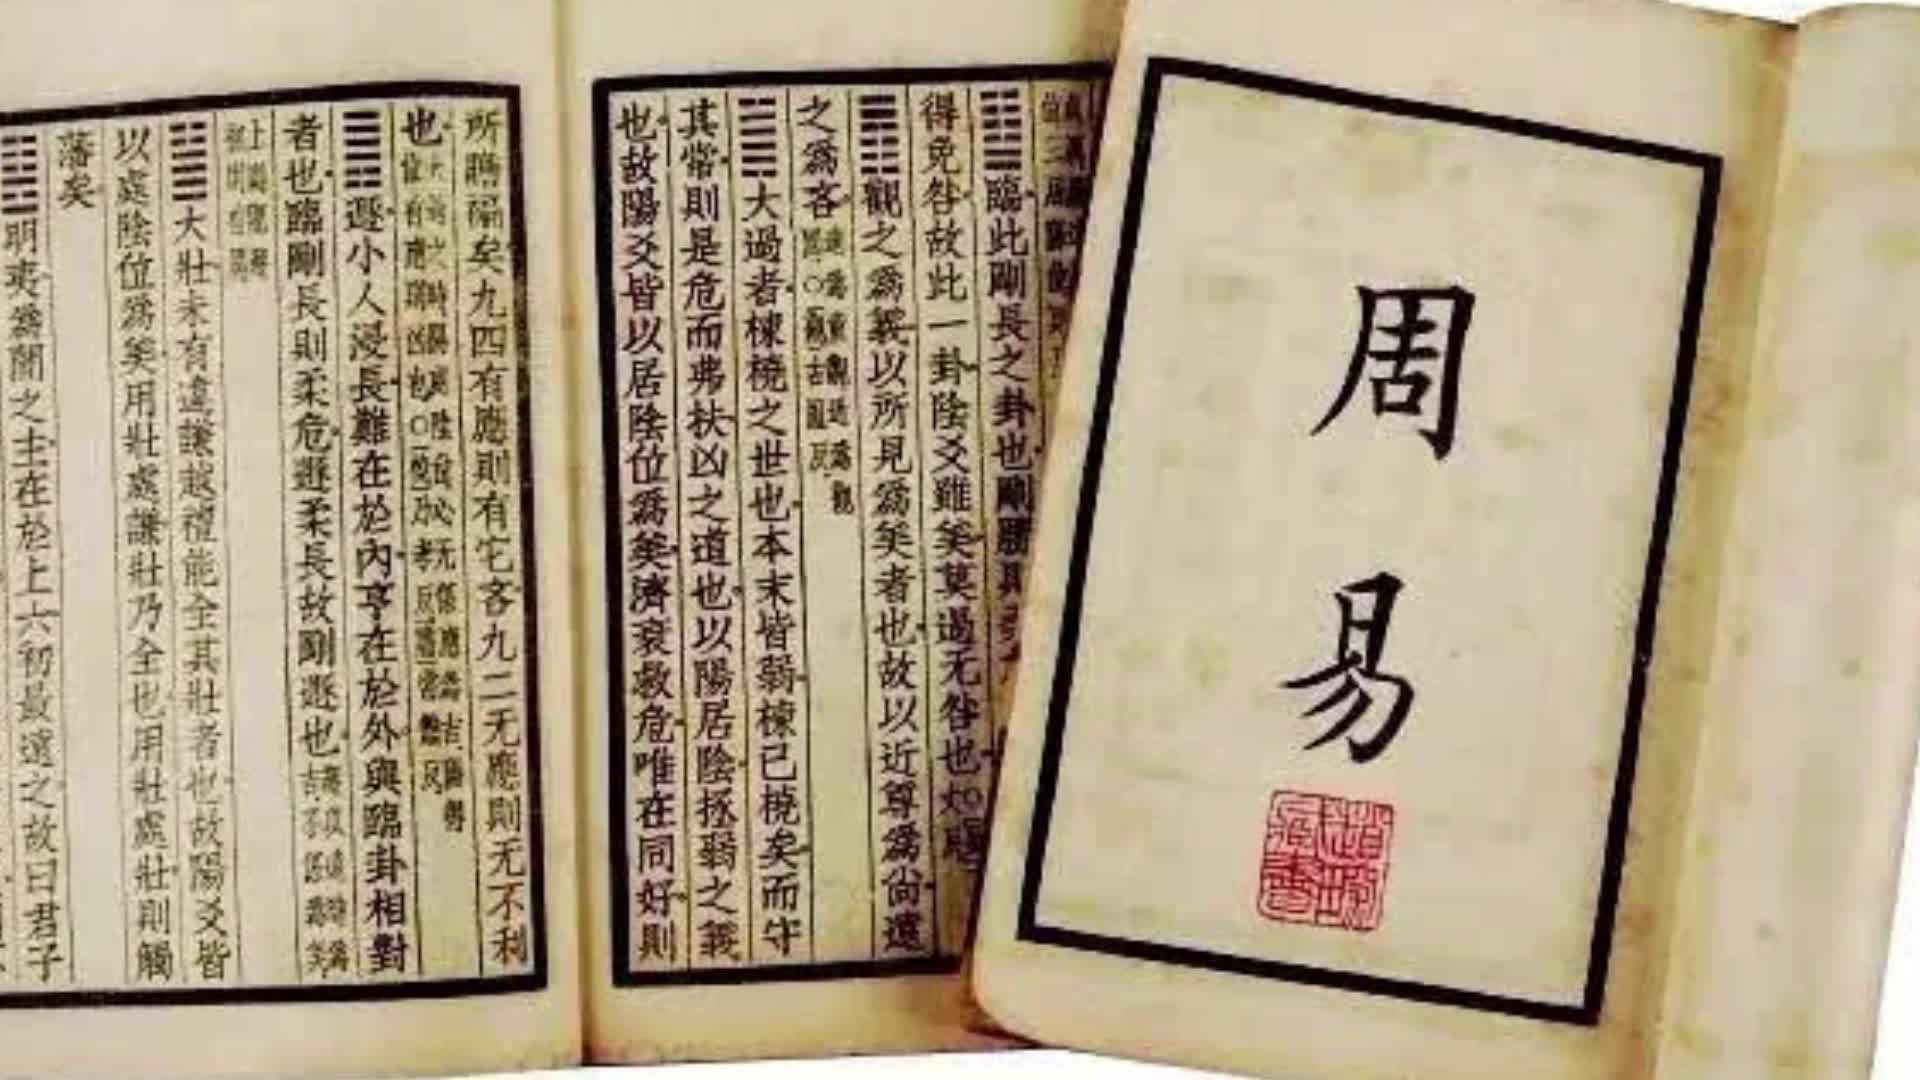 周易
䷒臨此剛長之卦也剛勝
得免咎故此一卦陰爻雖美莫過无咎也
䷓觀之爲義以所見爲美者也故以近尊爲尚遠
之爲吝
䷛大過者棟橈之世也本末皆弱棟已橈矣而守
其常則是危而弗扶凶之道也以陽居陰拯弱之義
也故陽爻皆以居陰位爲美濟衰救危唯在同好則
所贍褊矣九四有應則有它吝九二无應則无不利
也
䷠遯小人浸長難在於內亨在於外與臨卦相對
者也臨剛長則柔危遯柔長故剛遯也
䷡大壯未有違謙越禮能全其壯者也故陽爻皆
以處陰位爲美用壯處謙壯乃全也用壯處壯則觸
藩矣
䷣明夷爲闇之主在於上六初最遠之故曰君子